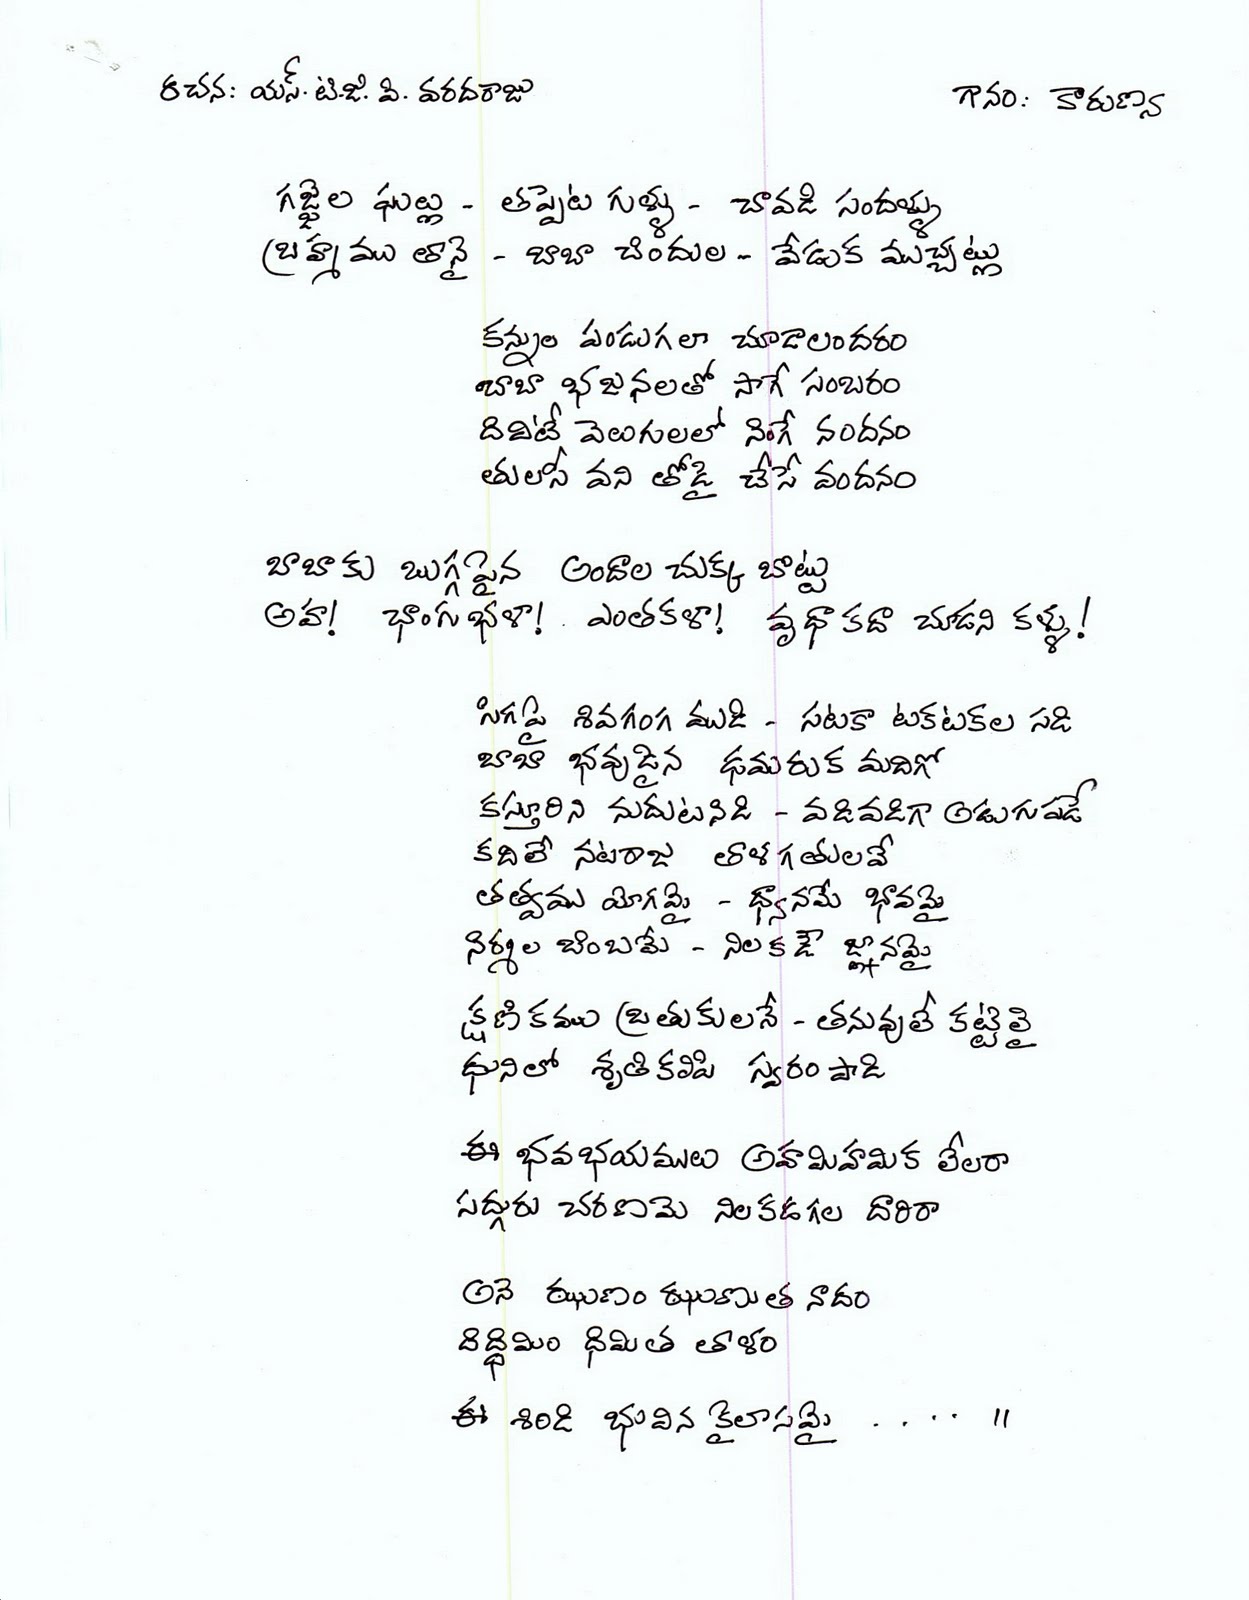 రచన: యస్. టి.జి. వి. వరదరాజు
గానం: కారుణ్య
గజ్జెల ఘల్లు - తప్పెట గుళ్ళు - చావడి సందళ్ళు
బ్రహ్మము తానై - బాబా చిందుల - వేడుక ముచ్చట్లు
కన్నుల పండుగలా చూడాలందరం
బాబా భజనలతో సాగే సంబరం
దివిటీ వెలుగులలో నింగే నందనం
తులసీ వని తోడై చేసే వందనం
బాబాకు బుగ్గపైన అందాల చుక్క బొట్టు
అహ! భాంగుభళా! ఎంతకళా! వృధాకదా చూడని కళ్ళు!
సిగపై శివగంగ ముడి - సటకా టకటకల సడి
బాబా భవుడైన ఢమరుక మదిగో
కస్తూరిని నుదుటనిడి - వడివడిగా అడుగుపడే
కదిలే నటరాజ తాళగతులవే
తత్వము యోగమై - ధ్యానమే భావమై
నిర్మల బింబమే - నిలకడౌ జ్ఞానమై
క్షణికము బ్రతుకులనే - తనువులే కట్టెలై
ధునిలో శృతికలిపి స్వరం పాడి
ఈ భవభయములు అహమిహమిక లేలరా
సద్గురు చరణమె నిలకడగల దారిరా
అనే ఝణం ఝణిత నాదం
దిద్ధిమిం ధిమిత తాళం
ఈ శిరిడి భువిన కైలాసమై . . . . ॥